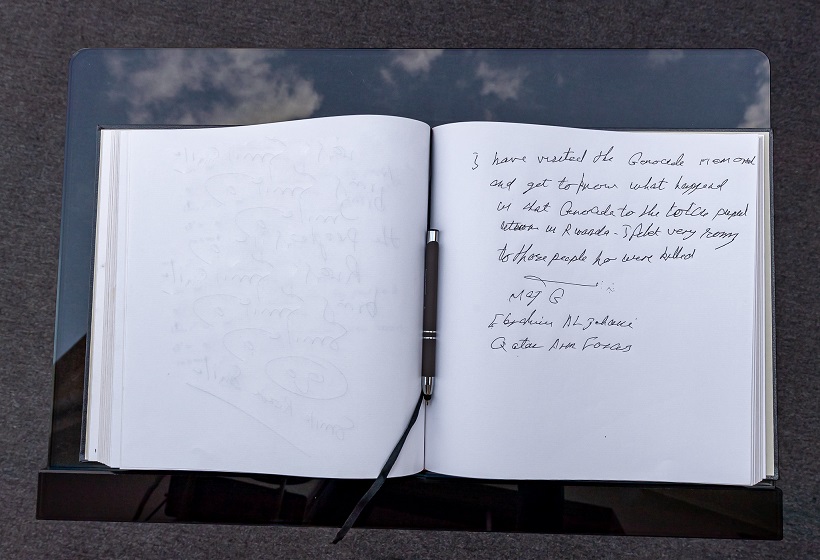 I have visited the Genocide memorial
and get to know what happend
in that Genocide to the totca pepel
in Rwanda. I felet very sorry
to those people ho were killed
MaJ G
Ebrahim AL
Qatar Arm Forces